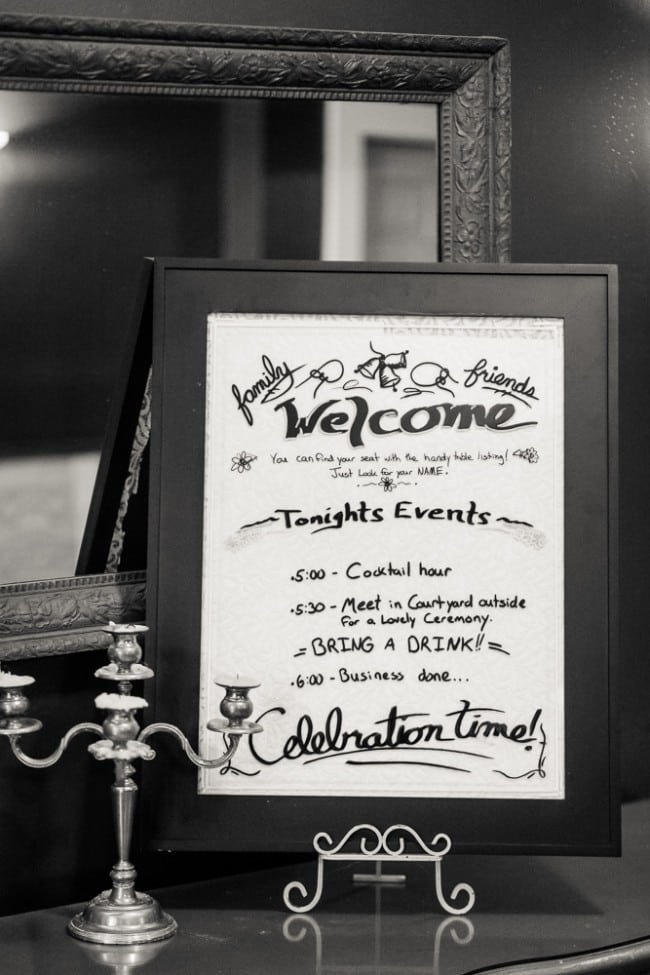 family friends
Welcome
You can find your seat with the handy table listing!
Just Look for your NAME.
Tonights Events
.5:00 - Cocktail hour
.5:30 - Meet in Courtyard outside
for a Lovely Ceremony.
= BRING A DRINK!! =
.6:00 - Business done...
Celebration time!